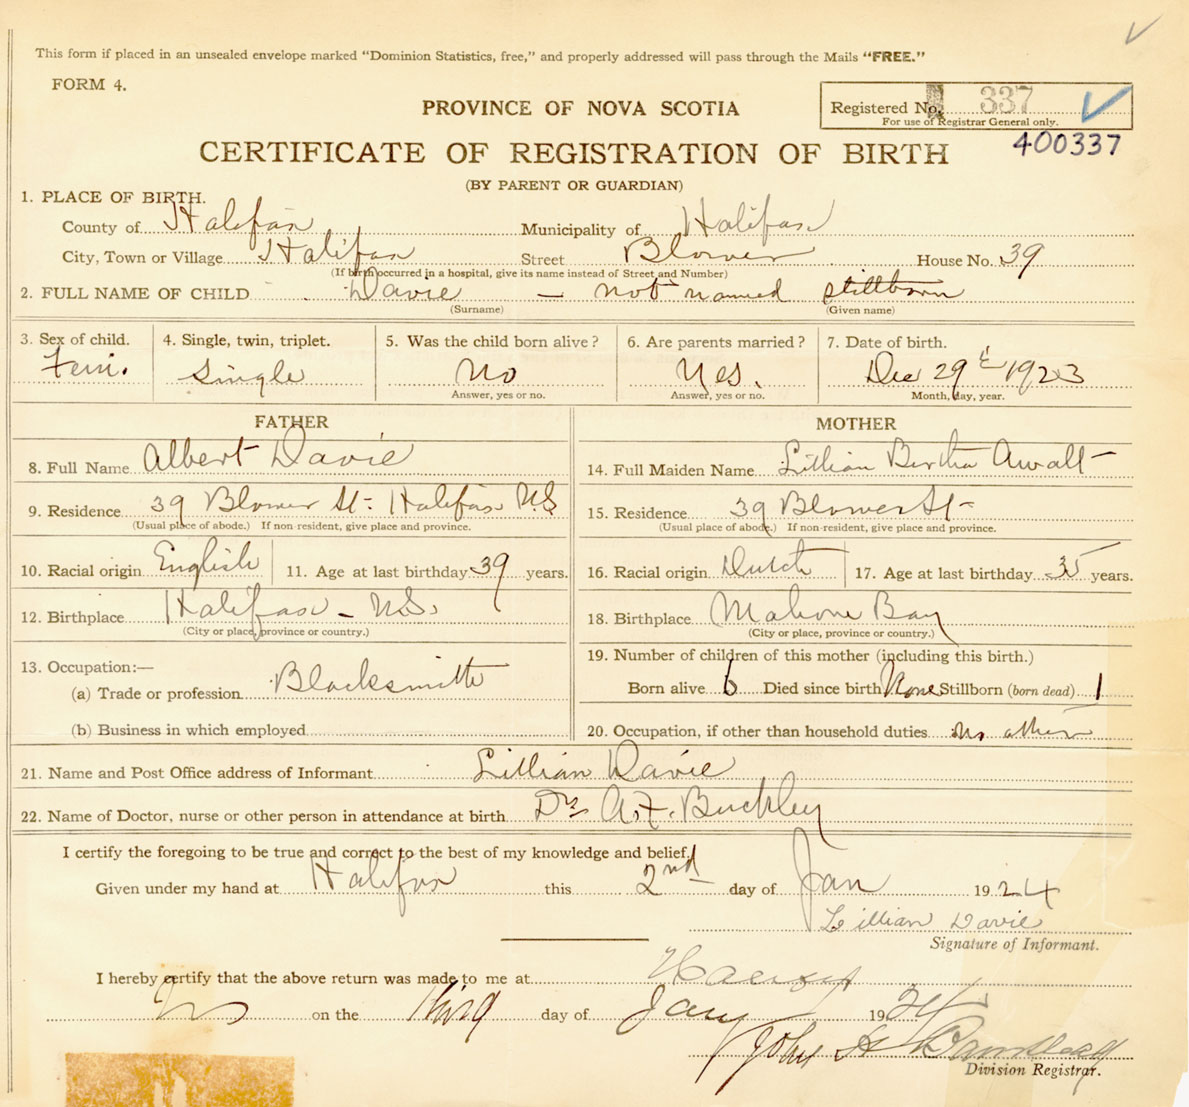 This form if placed in an unsealed envelope marked "Dominion Statistics, free," and properly addressed will pass through the Mails "FREE."
FORM 4.
PROVINCE OF NOVA SCOTIA
Registered No. 337
For use of Registrar General only.
400337
CERTIFICATE OF REGISTRATION OF BIRTH
(BY PARENT OR GUARDIAN)
1. PLACE OF BIRTH.
County of Halifax Municipality of Halifax
City, Town or Village Halifax Street Blower House No. 39
(If birth occurred in a hospital, give its name instead of Street and Number)
2. FULL NAME OF CHILD Davie — not named stillborn
(Surname) (Given name)
3. Sex of child. 4. Single, twin, triplet. 5. Was the child born alive? 6. Are parents married? 7. Date of birth.
Fem. Single No Yes. Dec 29 1923
Answer, yes or no. Answer, yes or no. Month, day, year.
FATHER MOTHER
8. Full Name Albert Davie 14. Full Maiden Name Lillian Bertha Awalt
9. Residence 39 Blower St- Halifax N.S 15. Residence 39 Blower St-
(Usual place of abode.) If non-resident, give place and province. (Usual place of abode.) If non-resident, give place and province.
10. Racial origin English 11. Age at last birthday 39 years. 16. Racial origin Dutch 17. Age at last birthday 35 years.
12. Birthplace Halifax - N.S. 18. Birthplace Mahone Bay
(City or place, province or country.) (City or place, province or country.)
13. Occupation:— 19. Number of children of this mother (including this birth.)
(a) Trade or profession Blacksmith Born alive 6 Died since birth None Stillborn (born dead) 1
(b) Business in which employed 20. Occupation, if other than household duties no other
21. Name and Post Office address of Informant Lillian Davie
22. Name of Doctor, nurse or other person in attendance at birth Dr A.F. Buckley
I certify the foregoing to be true and correct to the best of my knowledge and belief.
Given under my hand at Halifax this 2nd day of Jan 1924
Lillian Davie
Signature of Informant.
I hereby certify that the above return was made to me at Halifax
NS on the third day of Jany 1924
John A
Division Registrar.